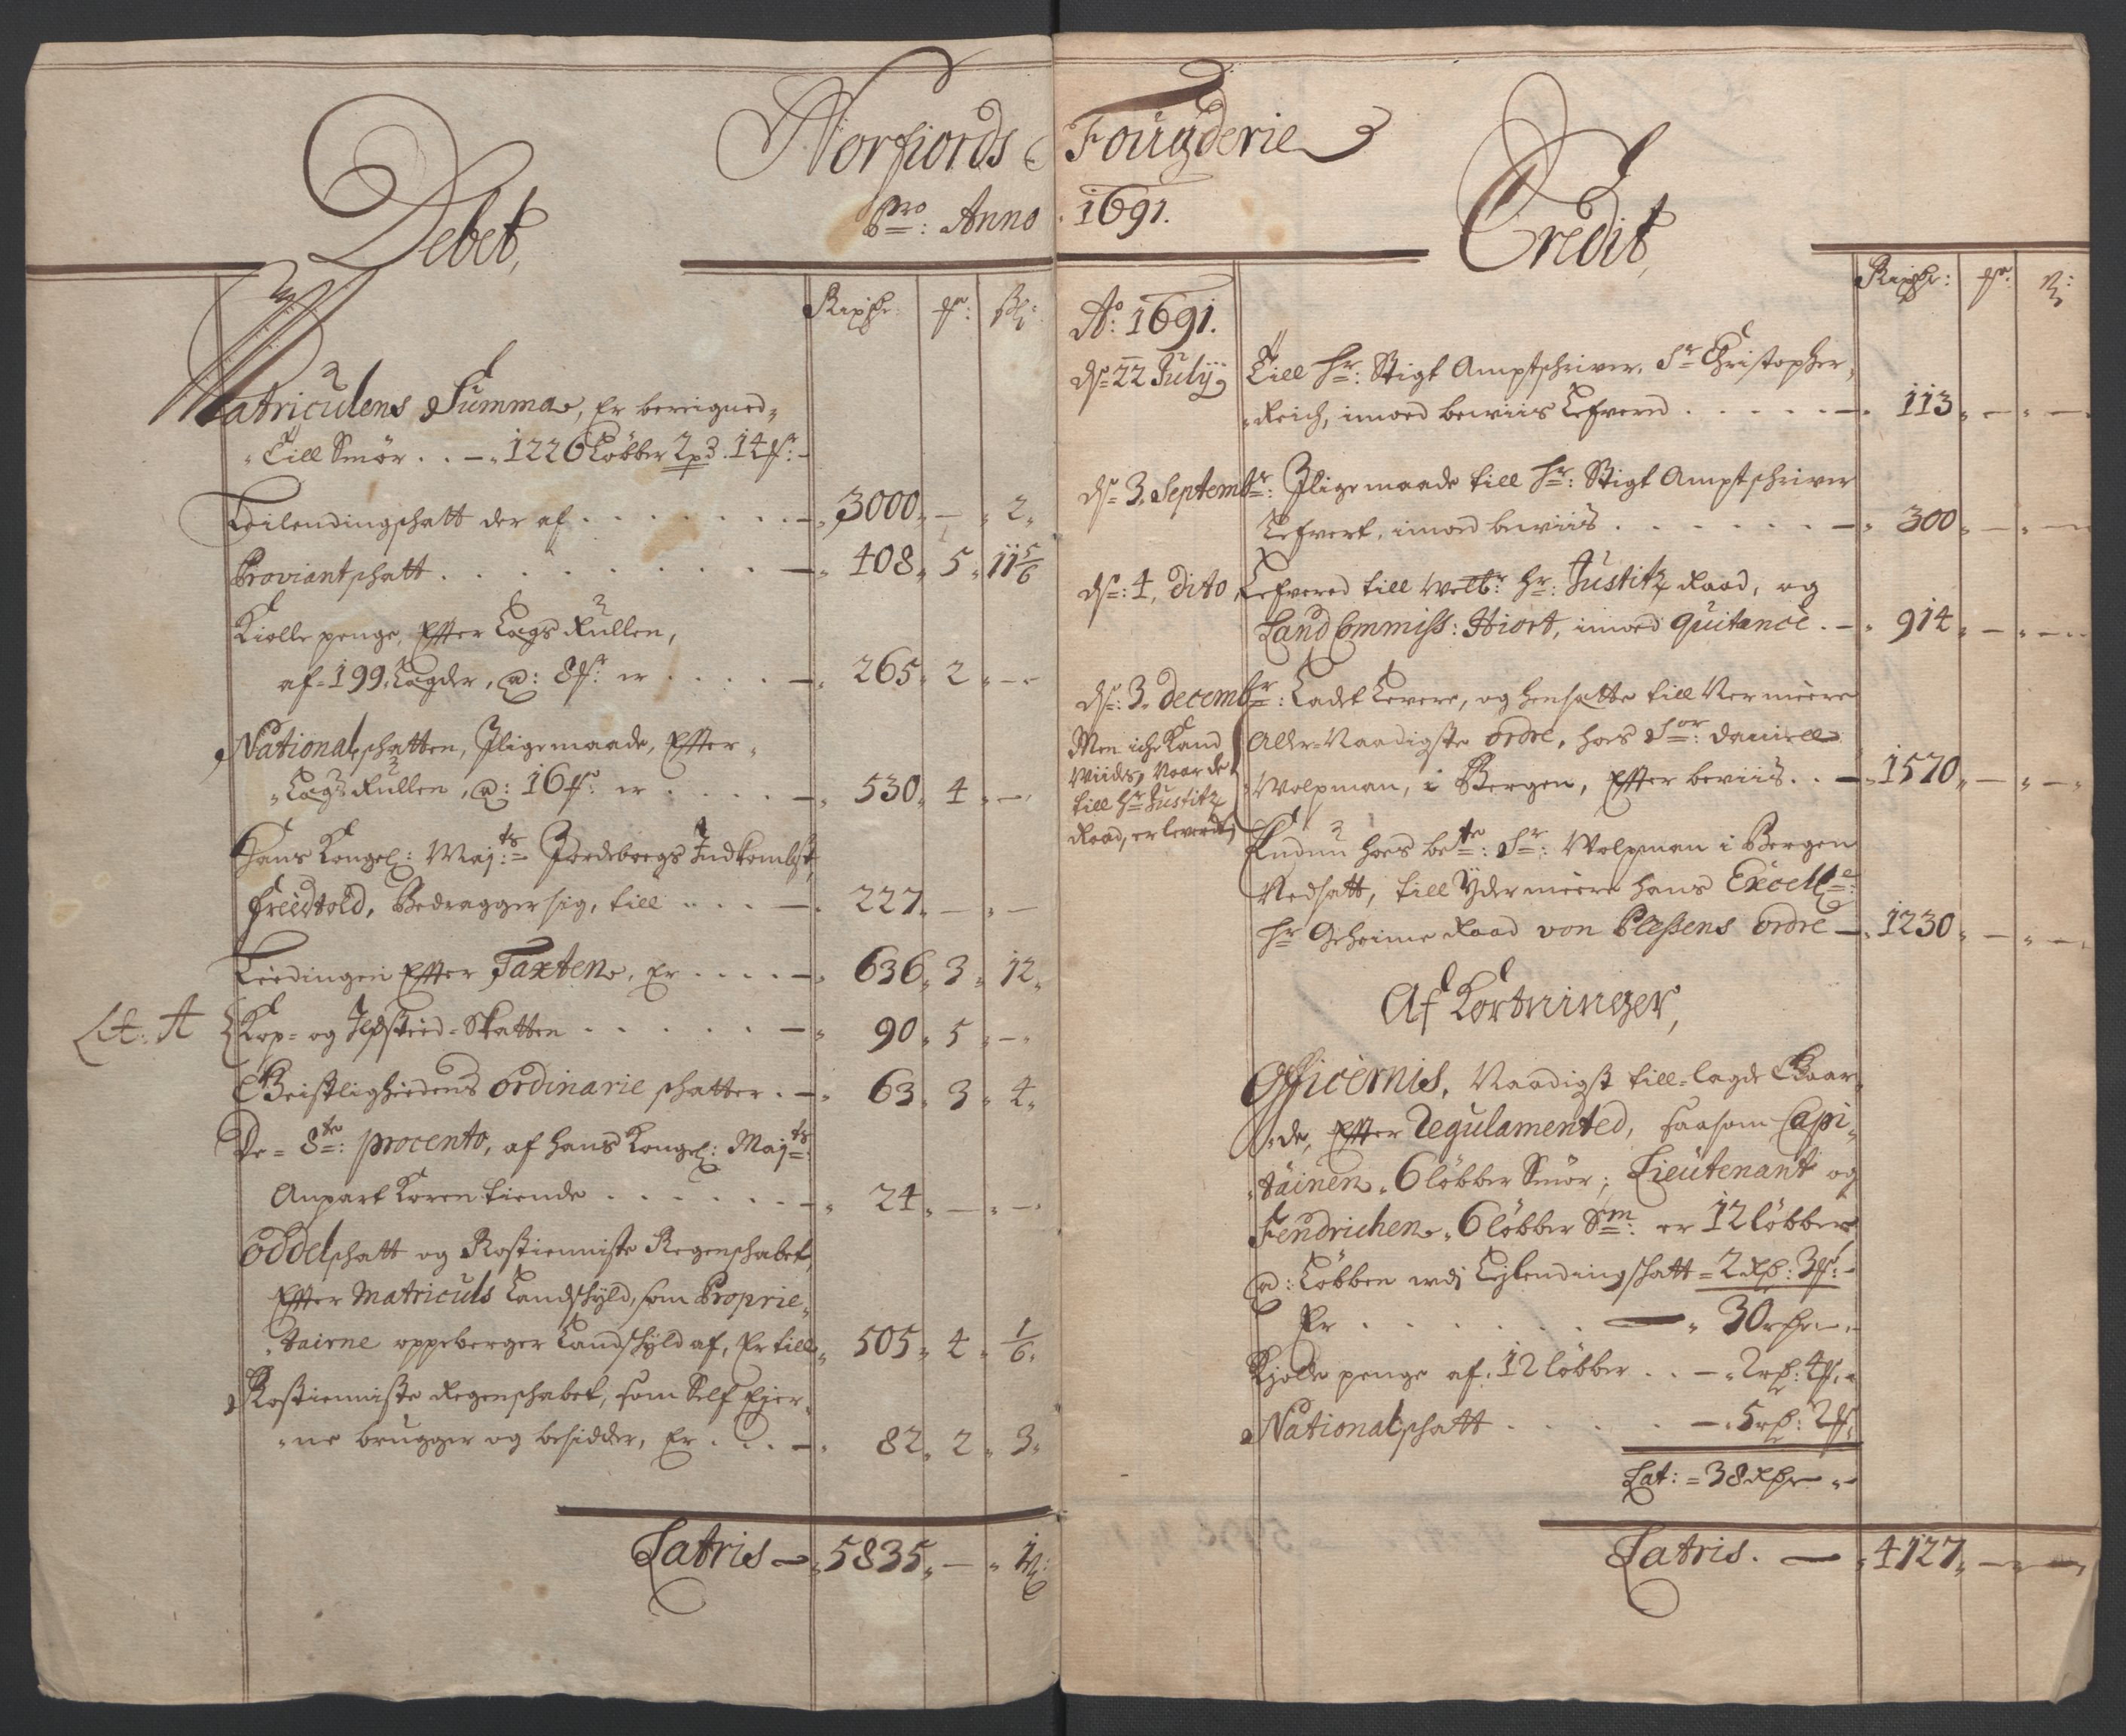 Norfiords Fougderie
pro: Anno 1691.
Debet,
Rixdr: ort: ß:
Matriculens Summa, Er bereigned
Till Smör . . — 1226 Löbber 2 p 3. 14
Leilendingschatt der af . . . — 3000 — 2
Proviantschatt . . . — 408 5 11 5/6
Kiolle penge, Efter Lags Rullen,
af 199. Lagder, a: 8 er . . . — 265 2 —
Nationalschatten, Jligemaade, Efter
Lags Rullen, a: 16 er . . . — 530 4 —
Hans Kongel: Maj:ts Jordebogs Indkombst,
Freedtold, Bedragger sig, till . . — 227 — —
Leedingen Efter Taxten, Er . . . — 636 3 12
Lit: A Kop- og Ildsteed-Skatten . . . — 90 5 —
Geistlighedens ordinarie schatter . — 63 3 4
De 8te: procento, af hans Kongel: Maj:ts
Anpart Koren tiende . . . — 24 — —
Oddelschatt og Rostienniste Regenschabet,
Efter Matriculs Landschyld, som Proprie
tairne oppeberger Landschyld af, Er till 505 4 1/6
Rostienniste Regenschabet, som Self Ejer
ne brugger og besidder, Er . . . — 82 2 3
Latris — 5835 — 1
Credit
Rixdr: ort: ß:
Ao: 1691.
ds 22 July Till Hr: Stigt Amptschriver, Sr Christopher
Reich, imod beviis Lefvered . . . — 113 — —
ds 3. Septembr: Jligemaade till Hr: Stigt Amptschriver
Lefvert, imod beviis . . . — 300 — —
ds: 4, dito, Lefvered till Welb:r Hr: Justitz Raad, og
Land Commiss: Hiort, imod quitance . — 914 — —
ds: 3. decembr: Ladt Levere, og hensatte till Vermeere
Aller-Naadigste ordre, hoes Sor: Daniell
Wolpman, i Bergen, Efter beviis . . — 1570 — —
Men iche Kand
Wiides, Naar de
till Hr Justitz
Raad, er leverdt
Endnu hoes be:te: Sr: Wolpman i Bergen
Nedsatt, till Ydermeere hans Excell:ce
Hr Geheime Raad von Plessens ordre — 1230 — —
Af Kortninger,
Officernis, Naadigst till-lagde Gaar
de, Efter Regulamented, saasom Capi
tainen 6 löbber Smör; Lieutenant og
Fendrichen 6 löbber Sm: er 12 löbber
a: Löbben Leylendingschatt 2 rdr: 3
Er . . . — 30 rdr —
Kjolle penge af 12 löbber . . — 2 rdr: 4
Nationalschatt . . . — 5 rdr: 2
Lat: = 38 rdr —
Latris. — 4127 — —